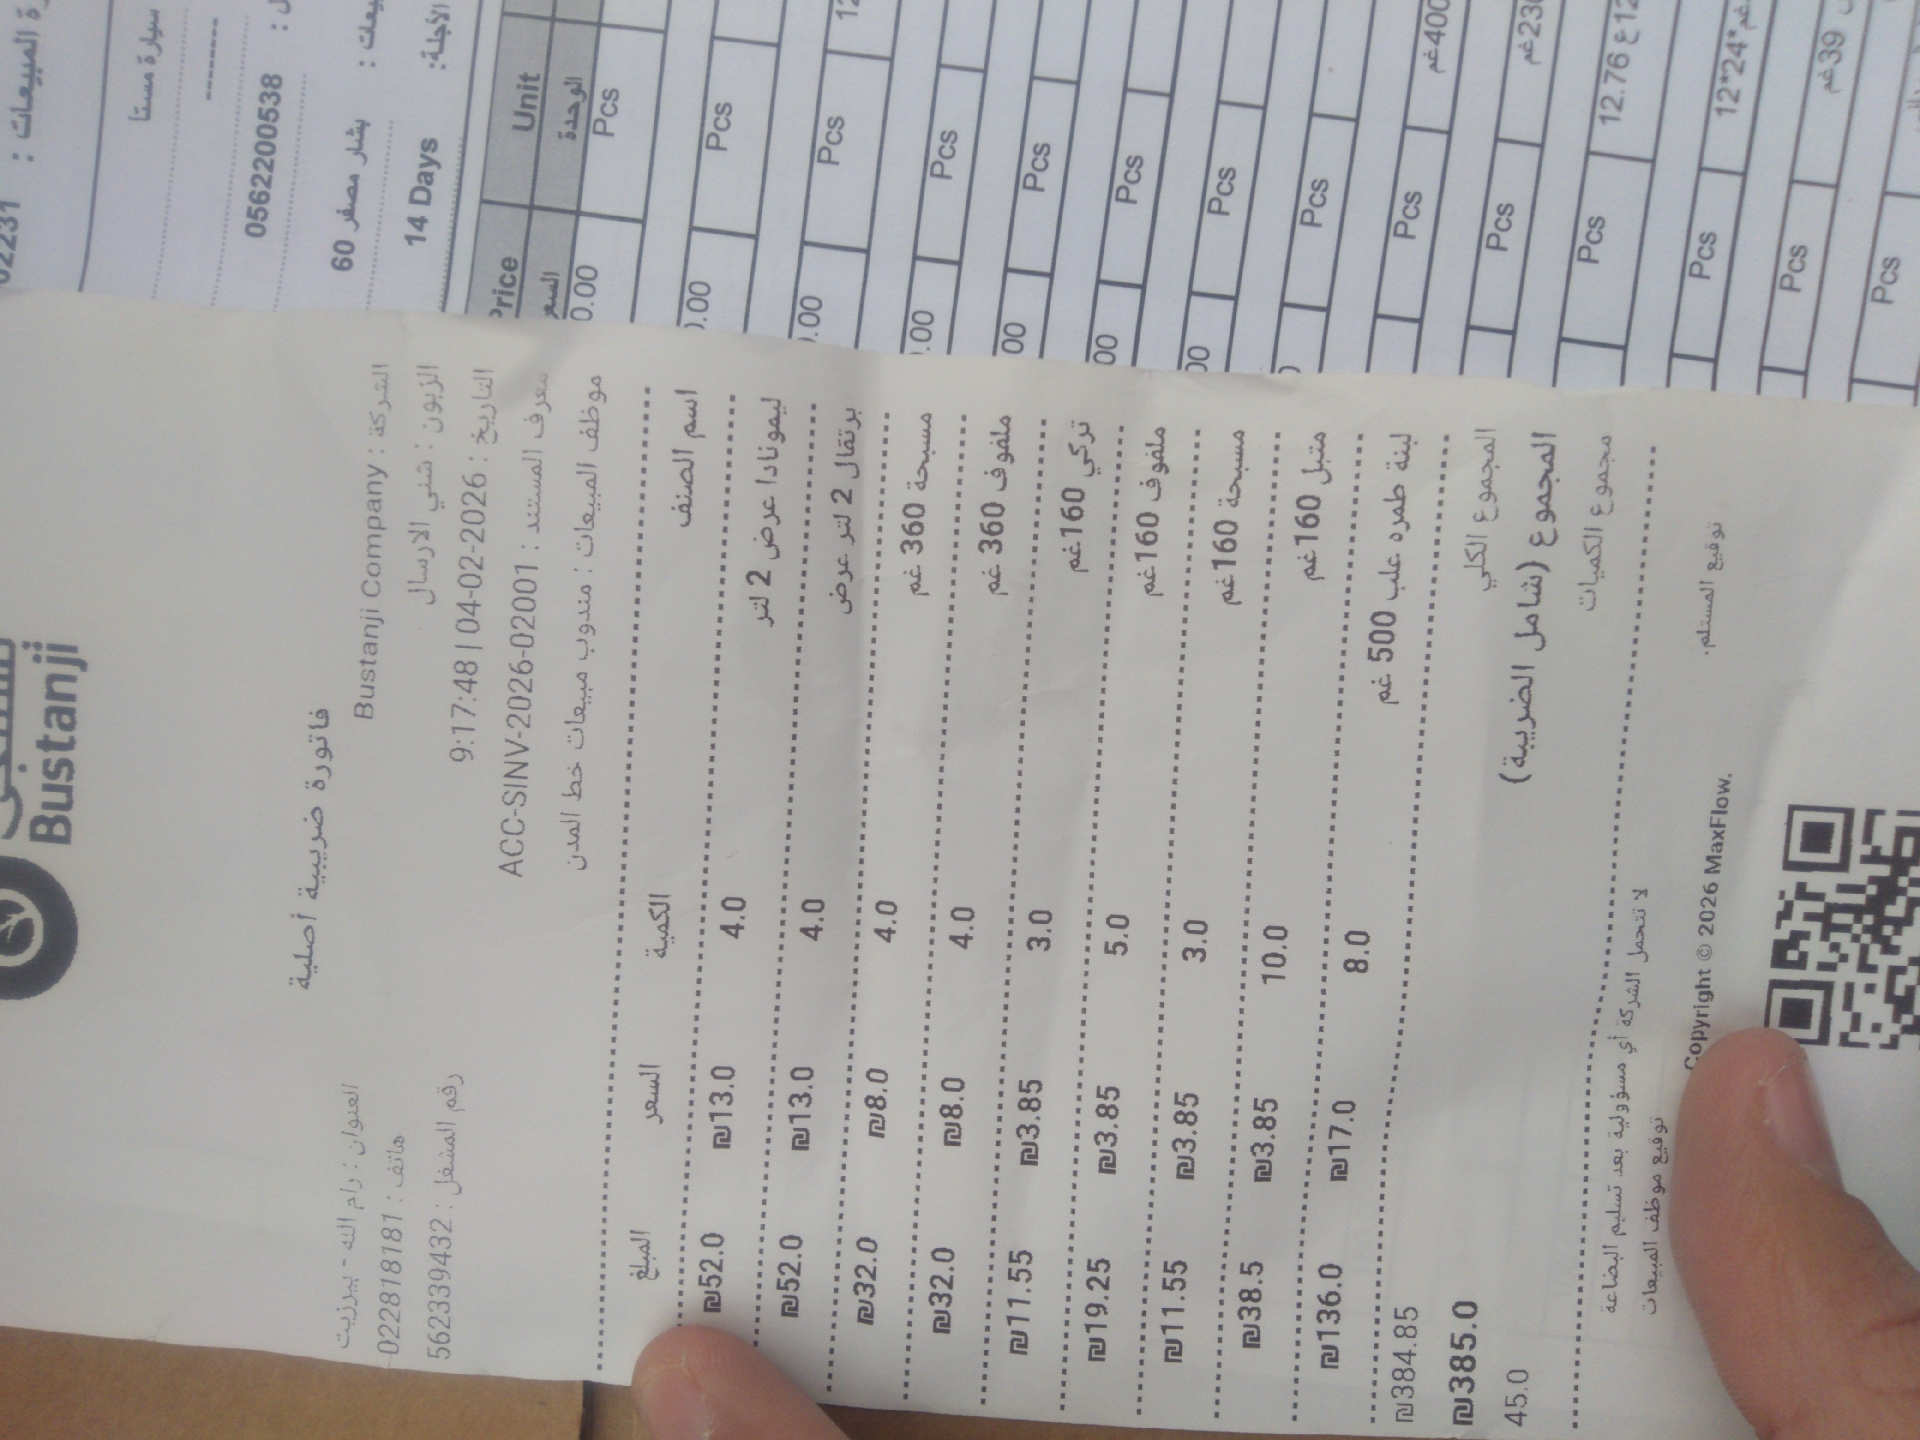 Bustanji
فاتورة ضريبية أصلية
الشركة : Bustanji Company
العنوان : رام الله - بيرزيت
الزبون : شني الارسال
هاتف : 022818181
التاريخ : 04-02-2026 | 9:17:48
رقم المشغل : 562339432
معرف المستند : ACC-SINV-2026-02001
موظف المبيعات : مندوب مبيعات خط المدن
اسم الصنف الكمية السعر المبلغ
ليمونادا عرض 2 لتر 4.0 ₪13.0 ₪52.0
برتقال 2 لتر عرض 4.0 ₪13.0 ₪52.0
مسبحة 360 غم 4.0 ₪8.0 ₪32.0
ملفوف 360 غم 4.0 ₪8.0 ₪32.0
تركي 160غم 3.0 ₪3.85 ₪11.55
ملفوف 160غم 5.0 ₪3.85 ₪19.25
مسبحة 160غم 3.0 ₪3.85 ₪11.55
متبل 160غم 10.0 ₪3.85 ₪38.5
لبنة طمره علب 500 غم 8.0 ₪17.0 ₪136.0
المجموع الكلي ₪384.85
المجموع (شامل الضريبة) ₪385.0
مجموع الكميات 45.0
لا تتحمل الشركة أي مسؤولية بعد تسليم البضاعة
توقيع المستلم. توقيع موظف المبيعات
Copyright © 2026 MaxFlow.
02231
المبيعات :
سيارة مستا
-------
0562200538
بشار مصفر 60
14 Days
Price Unit
السعر الوحدة
0.00 Pcs
.00 Pcs
.00 Pcs 12
.00 Pcs
00 Pcs
00 Pcs
00 Pcs
Pcs
Pcs 400غم
Pcs
Pcs 12.76
Pcs 12*24*
Pcs 39غم
Pcs